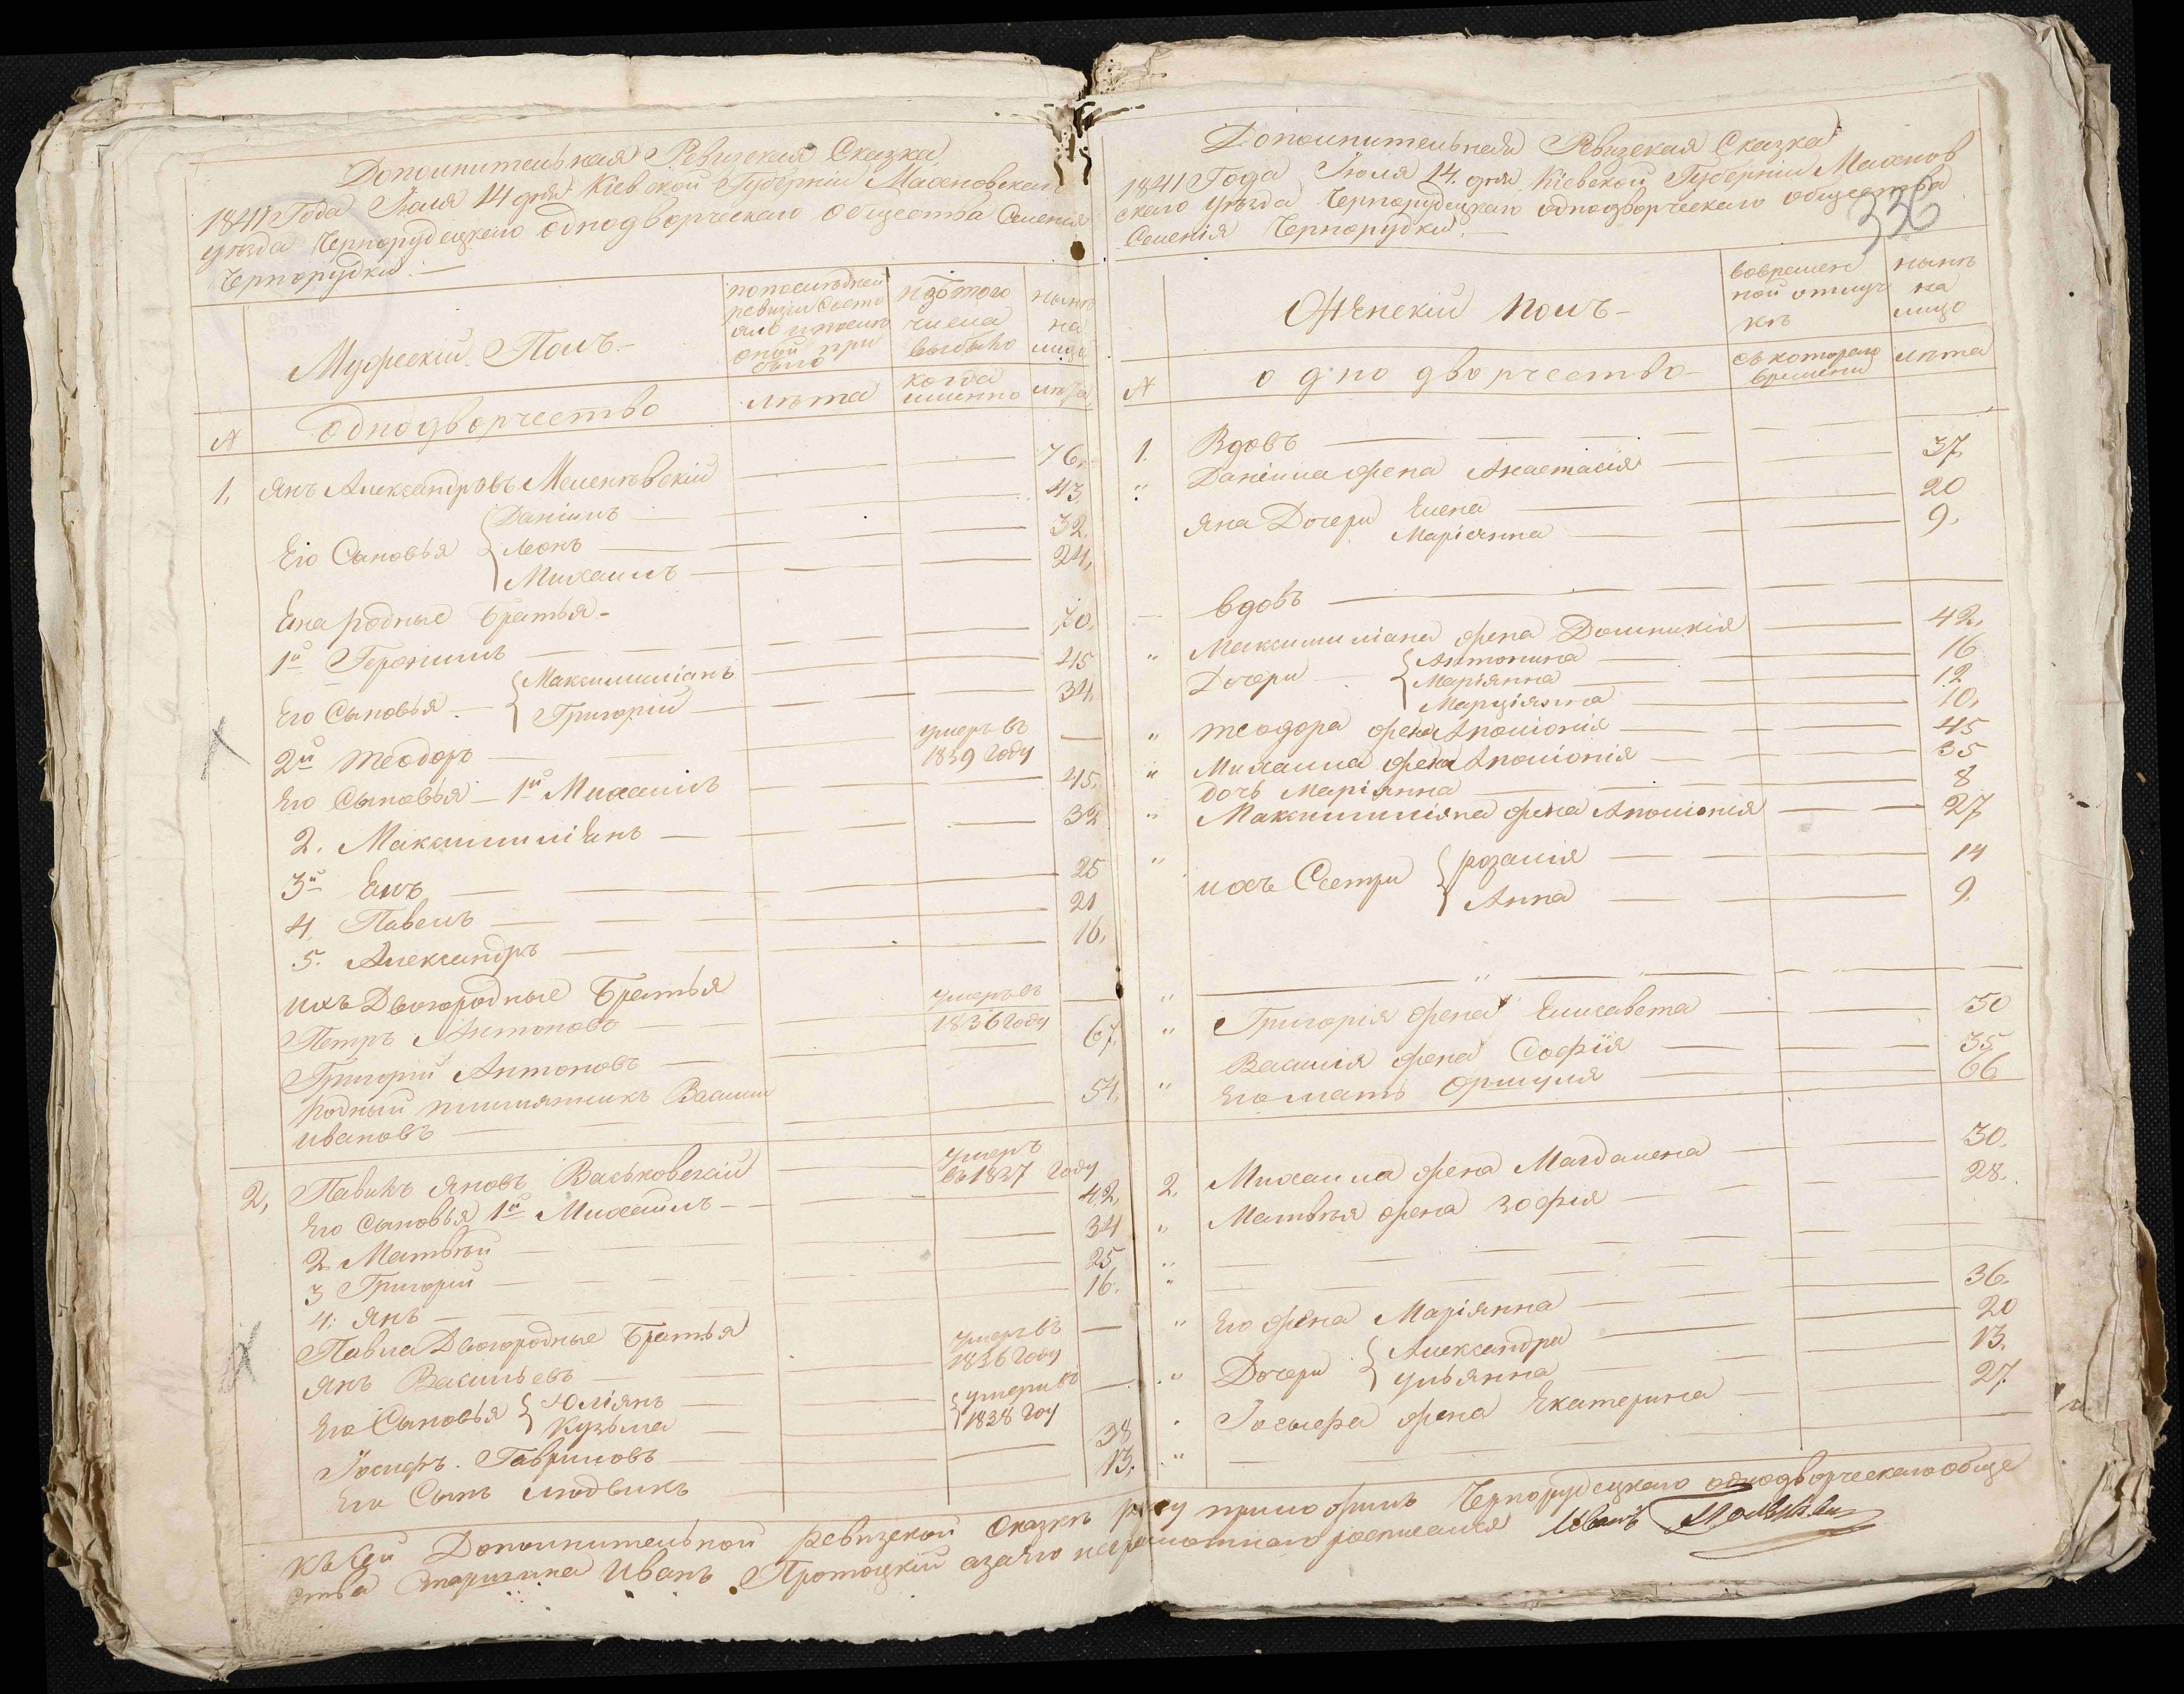 Дополнительная Ревизская Сказка
1841 Года Июля 14 дня Кіевской Губерніи Махновскаго
уезда Чернорудецкаго однодворческаго общества Селенія
Чернорудки.
Мужескій Полъ
по последней
ревизіи состо
яло и после
оной при
было
изъ того
числа
выбыло
ныне
на
лицо
№
Однодворчество
лета
когда
именно
лета
1, Янъ Александровъ Меленевскій — 76,
Даніилъ — 43
Его Сыновья Леонъ — 32,
Михаилъ — 24,
Яна родные братья
1й Геронимъ — 70,
Максимиліанъ — 45
Его Сыновья Григорій — 34,
2й Теодоръ — умеръ въ 1839 году —
Его Сыновья 1й Михаилъ — 45,
2. Максимиліянъ — 32
3й — 25
4, Павелъ — 21
5. Александръ — 16,
ихъ Двоюродные братья
Петръ Антоновъ — умеръ въ 1836 году —
Григорій Антоновъ — 67,
родный племянникъ Василій
Ивановъ — 51,
2, Павелъ Яновъ Васьковскій — умеръ въ 1837 году
Его Сыновья 1й Михаилъ — 42,
2 Матвей — 34
3 Григорій — 25
4: Янъ — 16.
Павла Двоюродные братья
Янъ Васильевъ — умеръ въ 1836 году —
Его Сыновья Юліянъ — умерли въ
Кузьма — 1838 году —
Іосифъ Гавриловъ — 38
Его Сынъ Людвикъ — 13.
Дополнительная Ревизская Сказка
336
1841 Года Июля 14. дня Кіевской Губерніи Махнов
скаго уезда Чернорудецкаго однодворческаго общества
Селенія Чернорудки.
Женскій полъ
во времен
ной отлуч
ке
ныне
на
лицо
№
однодворчество
съ котораго
времени
лета
1. Вдовъ —
" Даніила жена Анастасія — 37,
Яна Дочери Елена — 20
Маріянна — 9.
вдовъ —
" Максимиліана жена Доминикія — 42,
Дочери Антонина — 16
Маріянна — 12
Марціянна — 10,
" Теодора жена Аполіонія — 45
" Михаила жена Аполіонія — 35
дочь Маріянна — 8
" Максимиліяна жена Аполіонія — 27
" ихъ Сестри розалія — 14
Анна — 9.
" — " —
" Григорія жена Елисавета — 50
Василія жена Софія — 35
" Его мать — 66
2. Михаила жена Магдалена — 30.
" Матвея жена Зофія — 28.
" —
" —
" Его жена Маріянна — 36.
Дочери Александра — 20
" Ульянна — 13.
Іосифа жена Екатерина — 27.
" —
Къ сей Дополнительной ревизской Сказке руку приложилъ Чернорудецкаго однодворческаго обще
ства Старшина Иванъ Протоцкій а за его неграмотнаго росписался Иванъ